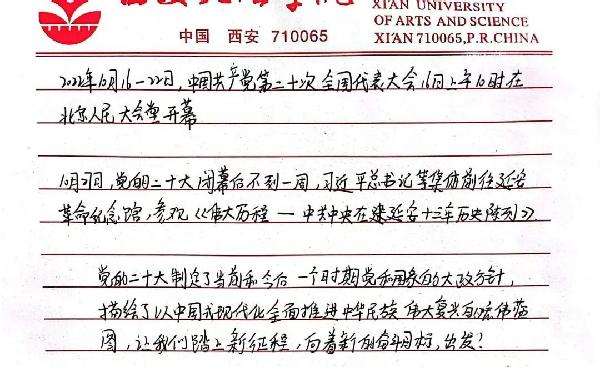 XI'AN UNIVERSITY
OF ARTS AND SCIENCE
中国 西安 710065
XI'AN 710065, P.R.CHINA
2022年10月16-22日,中国共产党第二十次全国代表大会16日上午10时在
北京人民大会堂开幕
10月27日,党的二十大闭幕后不到一周,习近平总书记等集体前往延安
革命纪念馆,参观《伟大历程 — 中共中央在延安十三年历史陈列》.
党的二十大制定了当前和今后一个时期党和国家的大政方针,
描绘了以中国式现代化全面推进中华民族伟大复兴的宏伟蓝
图,让我们踏上新征程,向着新的奋斗目标,出发!